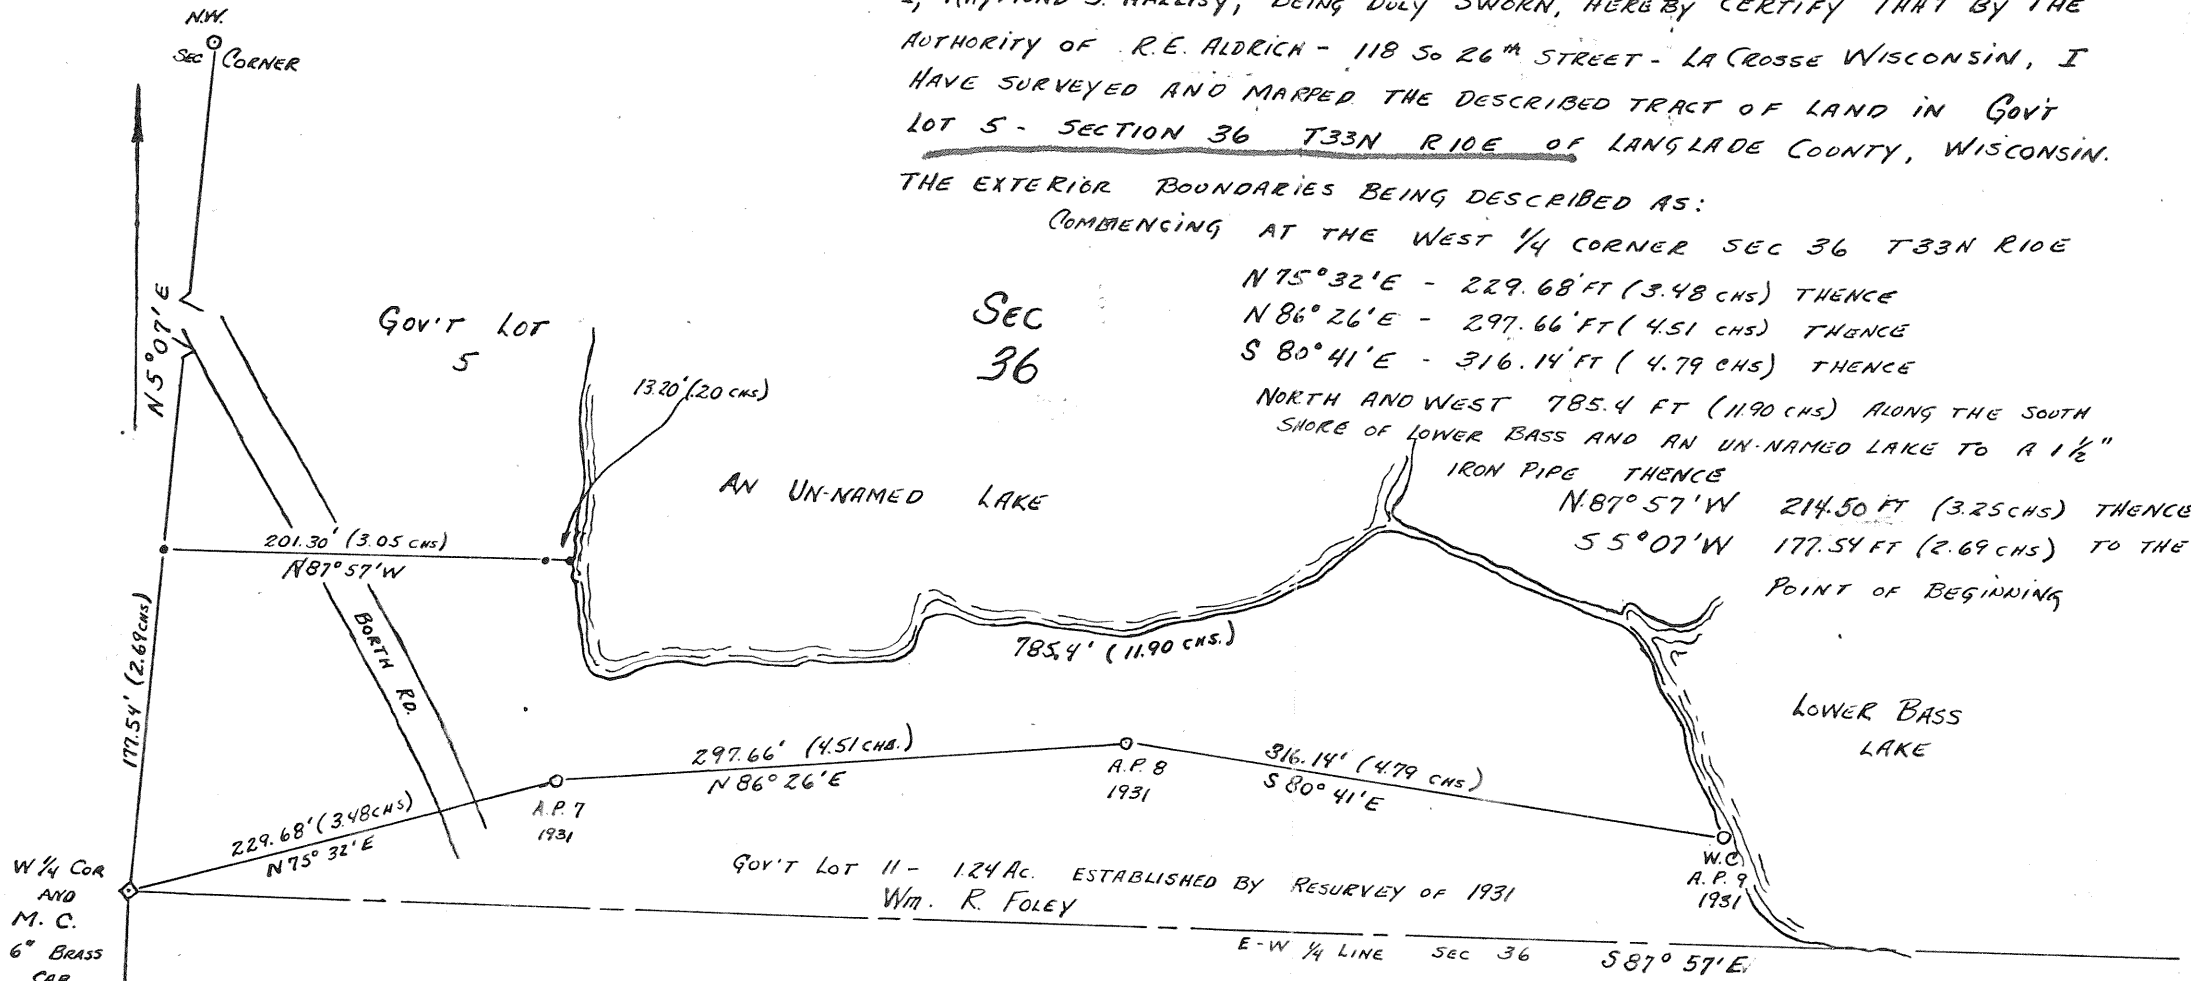 I, RAYMOND J. HALLISY, BEING DULY SWORN, HEREBY CERTIFY THAT BY THE
AUTHORITY OF R.E. ALDRICH - 118 So 26th STREET - LA CROSSE WISCONSIN, I
HAVE SURVEYED AND MAPPED THE DESCRIBED TRACT OF LAND IN GOV'T
LOT 5 - SECTION 36 T33N R10E OF LANGLADE COUNTY, WISCONSIN.
THE EXTERIOR BOUNDARIES BEING DESCRIBED AS:
COMMENCING AT THE WEST 1/4 CORNER SEC 36 T33N R10E
N 75° 32' E - 229.68' FT (3.48 CHS) THENCE
N 86° 26' E - 297.66' FT (4.51 CHS) THENCE
S 80° 41' E - 316.14' FT (4.79 CHS) THENCE
NORTH AND WEST 785.4 FT (11.90 CHS) ALONG THE SOUTH
SHORE OF LOWER BASS AND AN UN-NAMED LAKE TO A 1 1/2"
IRON PIPE THENCE
N 87° 57' W 214.50 FT (3.25 CHS) THENCE
S 5° 07' W 177.54 FT (2.69 CHS) TO THE
POINT OF BEGINNING
N.W.
SEC CORNER
N 5° 07' E
GOV'T LOT
5
SEC
36
13.20' (.20 CHS)
AN UN-NAMED LAKE
201.30' (3.05 CHS)
N 87° 57' W
BORTH RD.
177.54' (2.69 CHS)
785.4' (11.90 CHS.)
LOWER BASS
LAKE
297.66' (4.51 CHS.)
N 86° 26' E
316.14' (4.79 CHS)
S 80° 41' E
A.P. 8
1931
A.P. 7
1931
229.68' (3.48 CHS)
N 75° 32' E
W.C
A.P. 9
1931
W 1/4 COR
AND
M. C.
6" BRASS
CAP
GOV'T LOT 11 - 1.24 AC. ESTABLISHED BY RESURVEY OF 1931
Wm. R. FOLEY
E-W 1/4 LINE SEC 36 S 87° 57' E